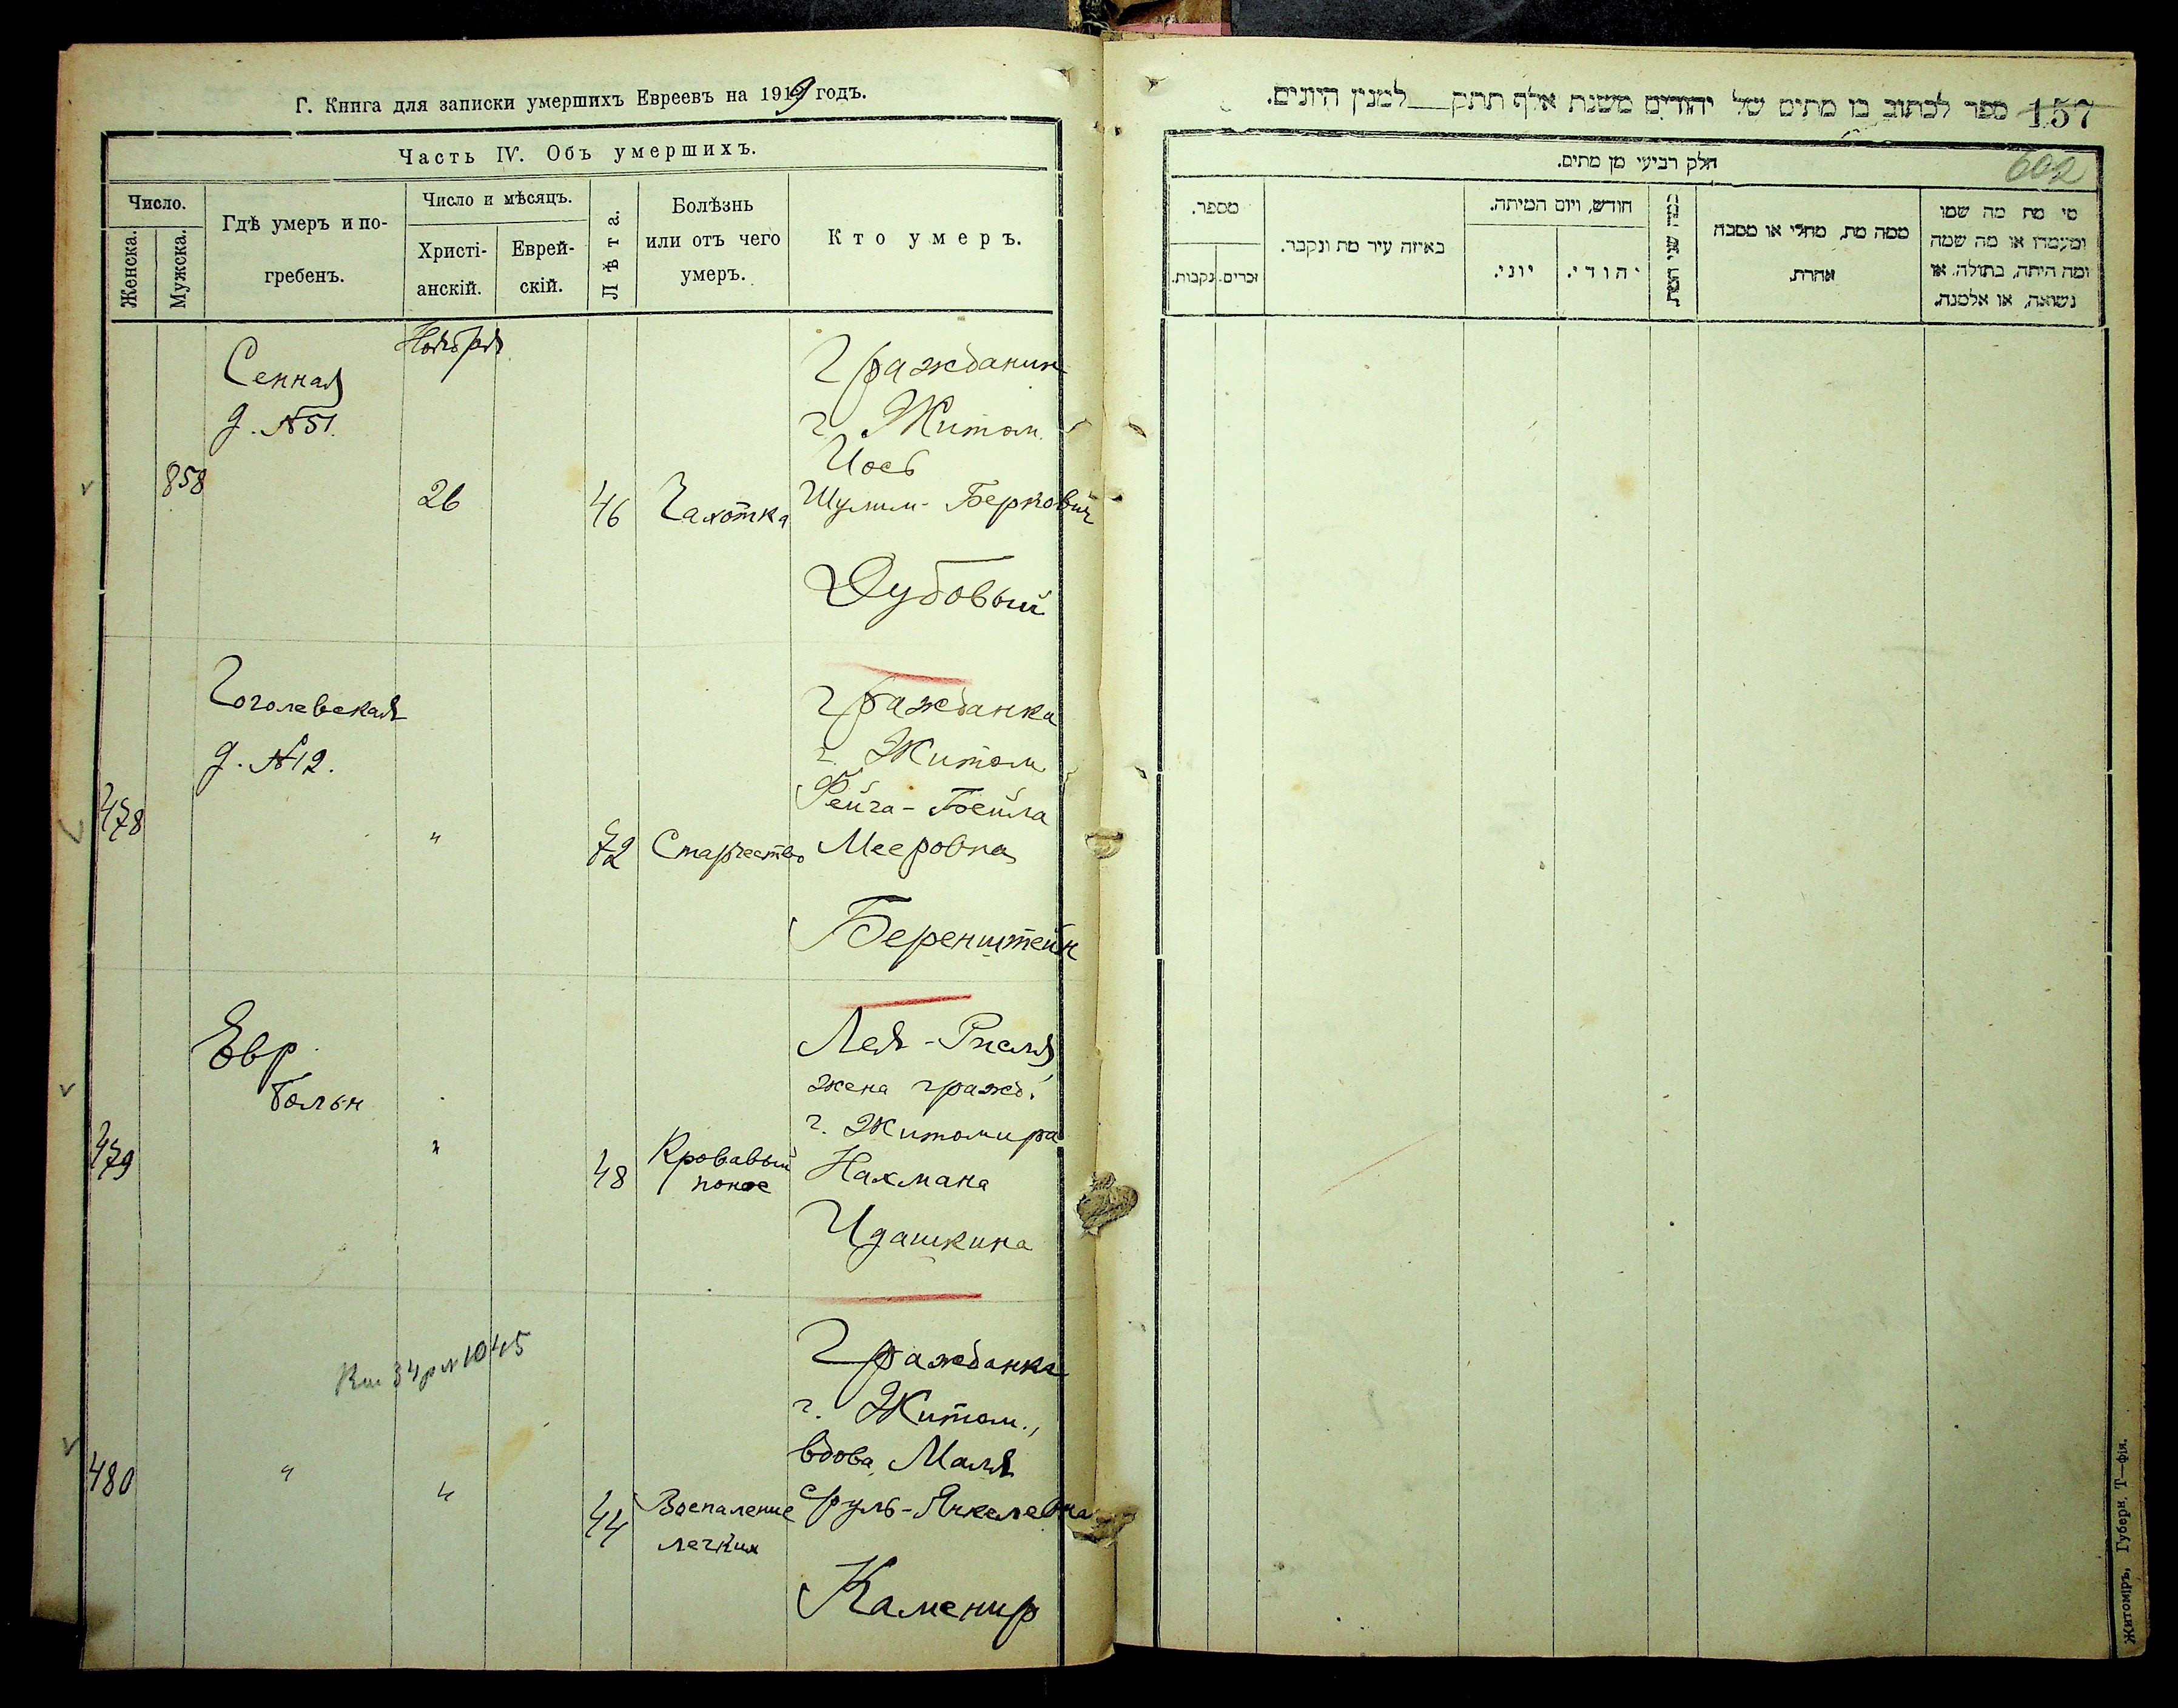 Г. Книга для записи умершихъ Евреевъ на 1919 годъ.
Часть IV. Объ умершихъ.
Число.
Женска.
Мужска.
Гдѣ умеръ и по-
гребенъ.
Число и мѣсяцъ.
Христі-
анскій.
Еврей-
скій.
Лѣта.
Болѣзнь
или отъ чего
умеръ.
Кто умеръ.
Ноября
Сенная
д. №51.
858
26
46
Чахотка
Гражданин
г. Житом.
Иось
Шулим-Беркович
Дубовый
Гоголевская
д. №12.
478
"
72
Старчество
Гражданка
г. Житом
Фейга-Бейла
Мееровна
Беренштейн
Евр
больн
479
"
48
Кровавый
понос
Лея-Рисля,
жена гражд.
г. Житомира
Нахмана
Идашкина
1045
480
"
"
44
Воспаление
легких
Гражданка
г. Житом.,
вдова, Маля
Сруль-Янкелевна
Каменир
157
ספר לכתוב בו מתים של יהודים משנת אלף תתק___למנין היונים.
602
חלק רביעי מן מתים.
מספר.
זכרים.
נקבות.
באיזה עיר מת ונקבר.
חודש, ויום המיתה.
יוני.
יהודי.
כמה שני המת
ממה מת, מחלי או מסבה
אחרת.
מי מת מה שמו
ומעמדו או מה שמה
ומה היתה, בתולה, או
נשואה, או אלמנה.
Житомiръ, Губерн. Т—фiя.